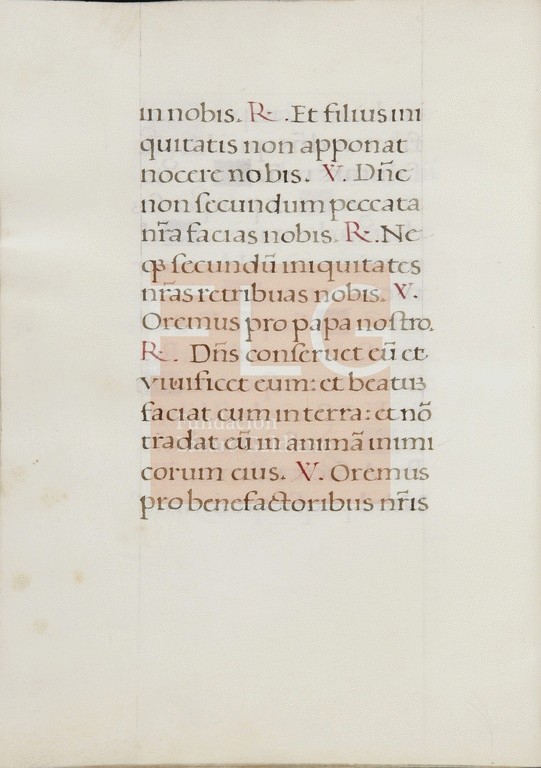 in nobis. R. Et filius ini
quitatis non apponat
nocere nobis. V. Dñe
non secundum peccata
nr̃a facias nobis. R. Ne
qȝ secundũ iniquitates
nr̃as retribuas nobis. V.
Oremus pro papa nostro.
R. Dñs conseruet eũ et
viuificet eum: et beatũ
faciat eum in terra: et nõ
tradat eũ in animã inimi
corum eius. V. Oremus
pro benefactoribus nr̃is
FLG
Fundación